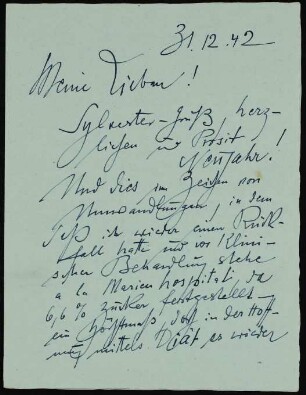 31.12.42
Meine Lieben!
Sylvester-Gruß, herz-
lichen und Prosit
Neujahr!
Und dies im Zeichen von
Umwandlungen, in dem
ich wieder einen Rück-
fall hatte und vor klini-
schen Behandlung stehe
a la Marienhospital, da
6,6% Zucker festgestellt -
ein Höchstmaß, doch in der Hoff-
nung mittels Diät es wieder